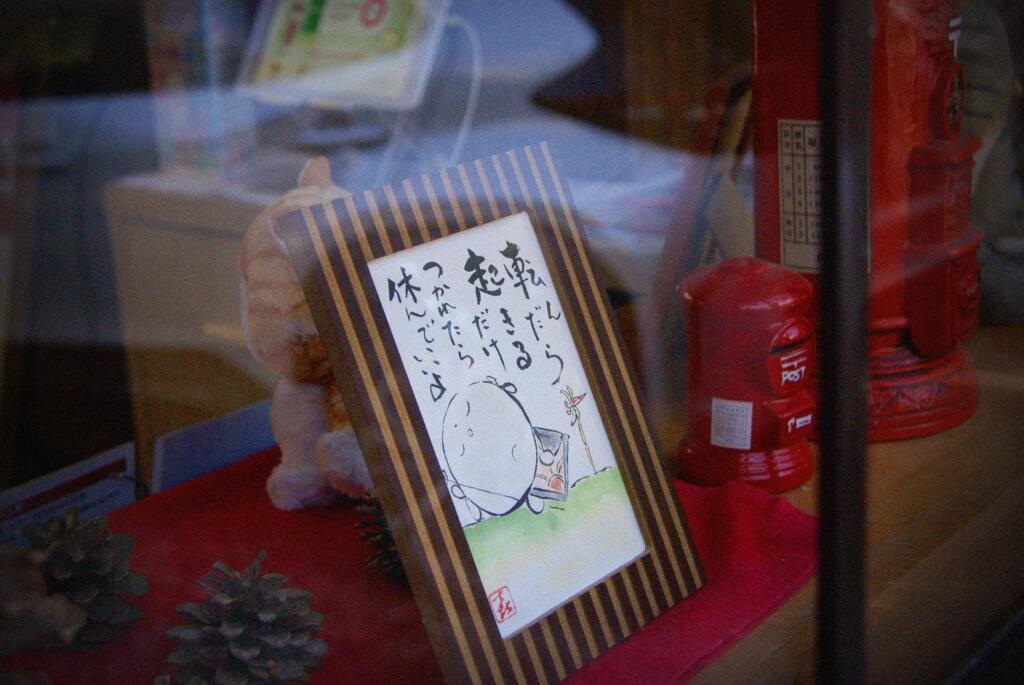 転んだら
起きるだけ
つかれたら
休んでいいよ
〒
POST